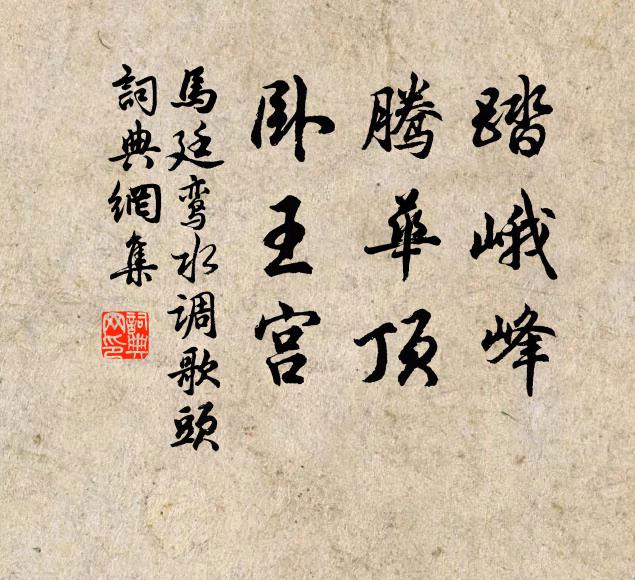 踏峨峰
腾华顶
卧王宫
馬廷鸾水调歌頭
詞典網集
詞典
网印